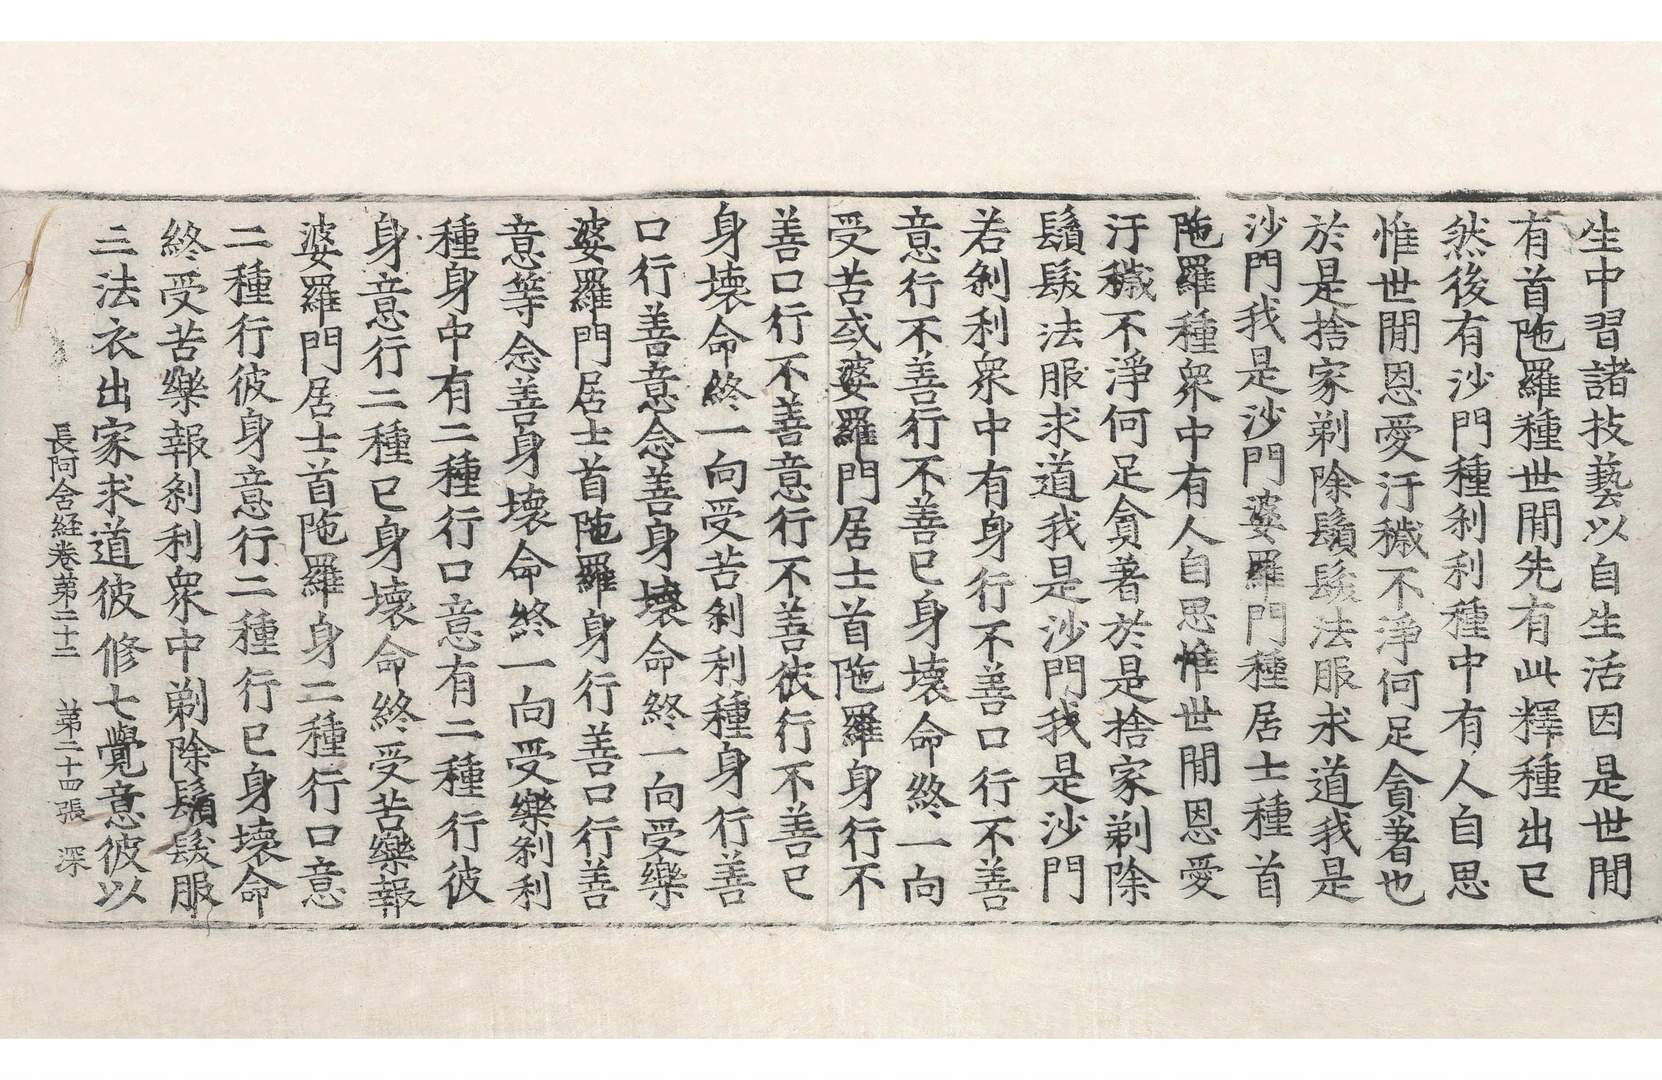 生中習諸技藝以自生活因是世閒
有首陁羅種世閒先有此釋種出已
然後有沙門種刹利種中有人自思
惟世閒恩愛汙穢不淨何足貪著也
於是捨家剃除鬚髮法服求道我是
沙門我是沙門婆羅門種居士種首
陁羅種衆中有人自思惟世閒恩愛
汙穢不淨何足貪著於是捨家剃除
鬚髮法服求道我是沙門我是沙門
若刹利衆中有身行不善口行不善
意行不善行不善已身壞命終一向
受苦或婆羅門居士首陁羅身行不
善口行不善意行不善彼行不善已
身壞命終一向受苦刹利種身行善
口行善意念善身壞命終一向受樂
婆羅門居士首陁羅身行善口行善
意等念善身壞命終一向受樂刹利
種身中有二種行口意有二種行彼
身意行二種已身壞命終受苦樂報
婆羅門居士首陁羅身二種行口意
二種行彼身意行二種行已身壞命
終受苦樂報刹利衆中剃除鬚髮服
三法衣出家求道彼修七覺意彼以
長阿含経卷第二十二 第二十四張 深